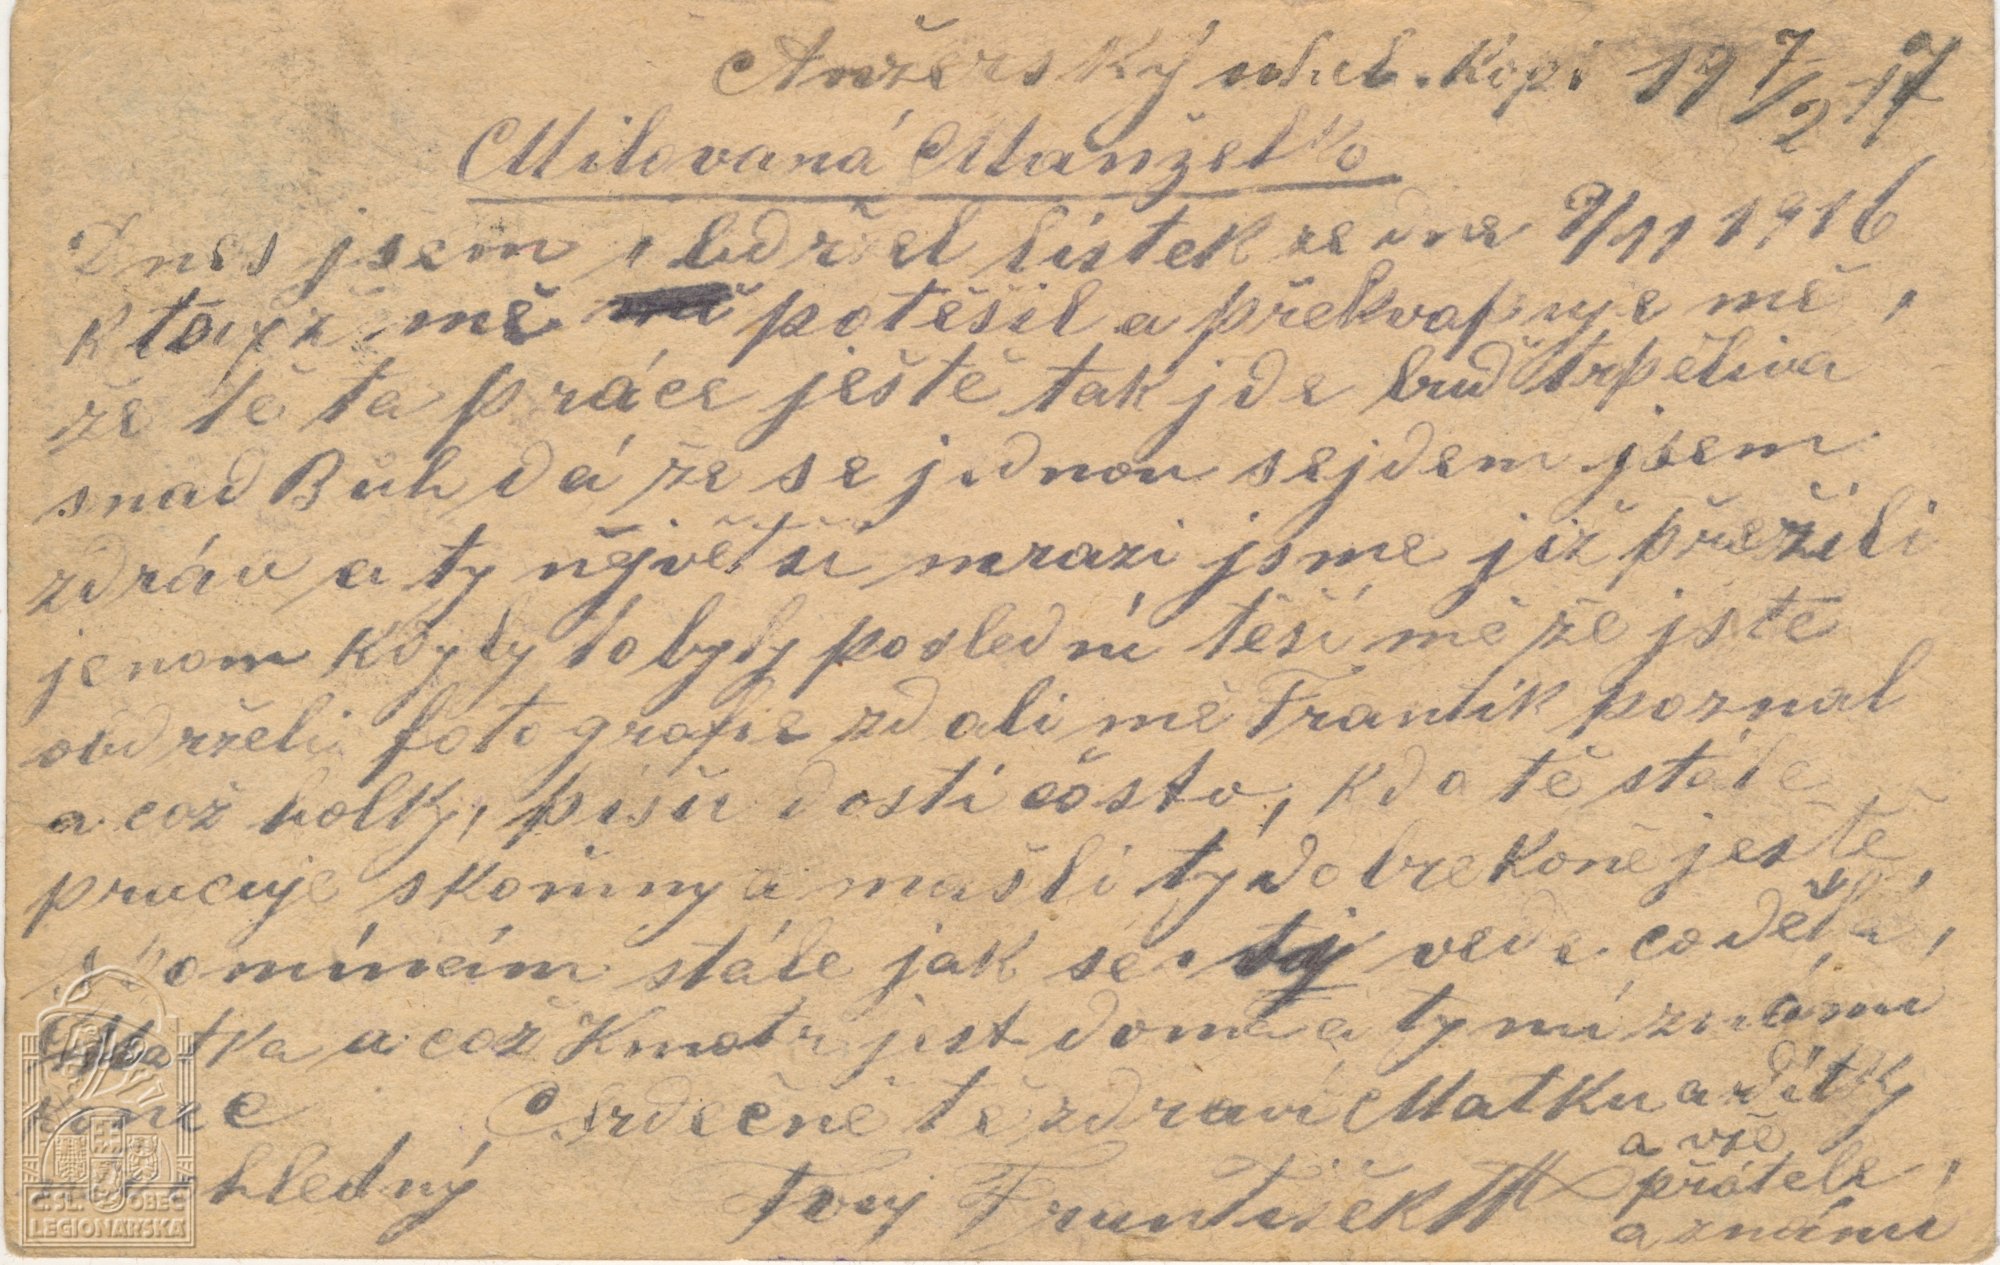 Anžerský uhel. Kopi 19 7/2 17
Milovaná Manželko
Dnes jsem obdržel lístek ze dne 9/11 1916
kterýž mě potěšil a překvapuje mě,
že tě ta práce ještě tak jde buď trpěliva
snad Bůh dá že se jednou sejdem jsem
zdráv a ty největší mrazi jsme již přežili
jenom kdyby to byly poslední těší mě že jste
obdrželi fotografie zdali mě Frantík poznal
a což holky, píšu dosti často, kdo tě stále
pracuje s komíny a mašli ty dobre koně ještě,
vzpomínám stále jak se ty vede co dělá,
Matka a což Kmotr jest doma a tymí známi
Srdečně tě zdraví Matku a dítky
a vše
hledný Tvuj František přátele,
a známi
ČSL. OBEC
LEGIONÁŘSKÁ